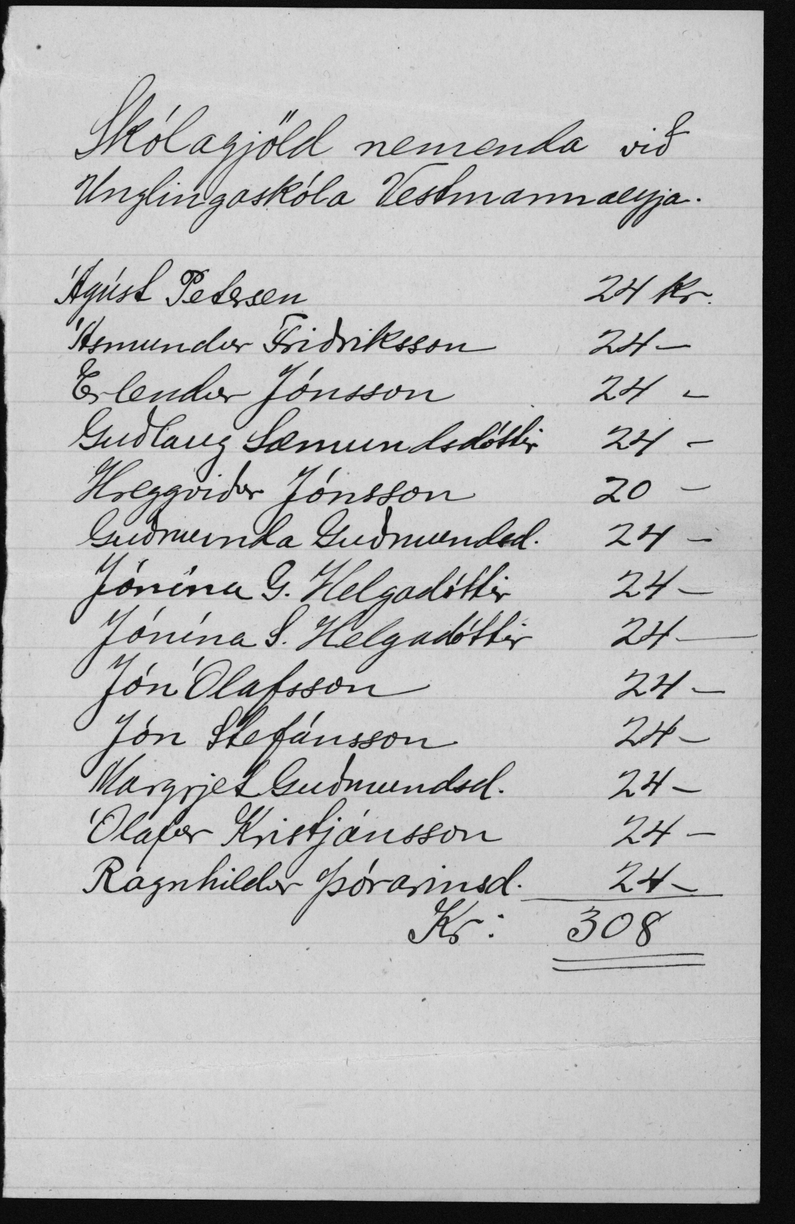 Skólagjöld nemenda við
Unglingaskóla Vestmannaeyja.
Ágúst Petersen 24 kr.
Ásmundur Friðriksson 24 —
Erlendur Jónsson 24 -
Guðlaug Sæmundsdóttir 24 -
Hreggviður Jónsson 20 -
Guðmunda Guðmundsd. 24 —
Jónína G. Helgadóttir 24 —
Jónína S. Helgadóttir 24 —
Jón Ólafsson 24 —
Jón Stefánsson 24 —
Margrjet Guðmundsd. 24 —
Ólafur Kristjánsson 24 —
Ragnhildur Þórarinsd. 24 —
Kr: 308